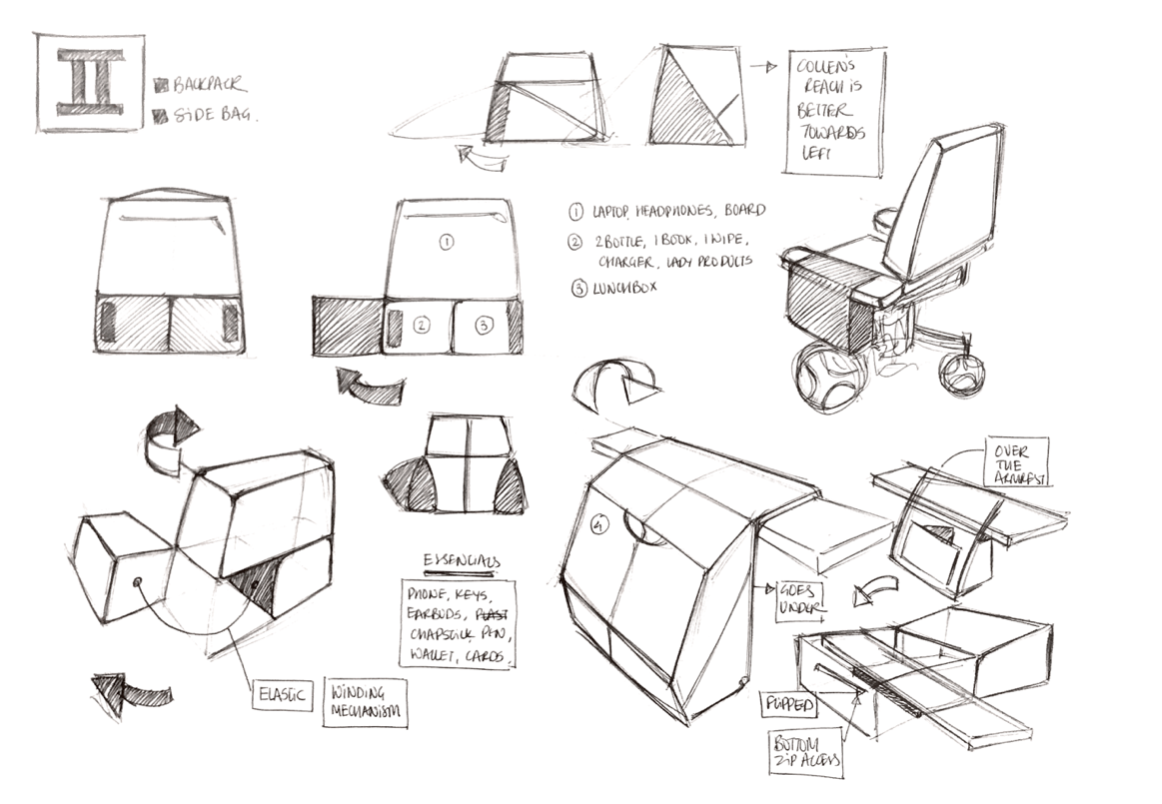 II
BACKPACK
SIDE BAG.
COLLEN'S
REACH IS
BETTER
TOWARDS
LEFT
1 LAPTOP, HEADPHONES, BOARD
2 2 BOTTLE, 1 BOOK, 1 WIPE,
CHARGER, LADY PRODUCTS
3 LUNCHBOX
1
2
3
OVER
THE
ARMREST
4
ESSENCIALS
PHONE, KEYS,
EARBUDS,
CHAPSTICK PEN,
WALLET, CARDS.
GOES
UNDER
ELASTIC
WINDING
MECHANISM
FLIPPED
BOTTOM
ZIP ACCESS